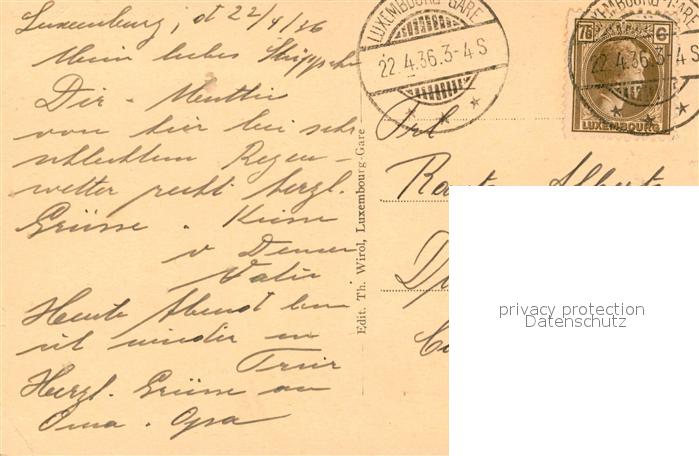 Luxemburg, d 22/4/36
Mein liebes
Dir
von hier bei sehr
schlechtem Regen-
wetter recht herzl.
Grüsse. Küsse
v Deinem
Vater
Heute Abend bin
ich wieder in
Trier
Herzl. Grüsse an
Oma. Opa
Edit. Th. Wirol, Luxembourg-Gare
LUXEMBOURG-GARE
22.4.36.3-4 S
75 C
LUXEMBOURG
LUXEMBOURG-GARE
22.4.36.3-4 S
Frl
privacy protection
Datenschutz